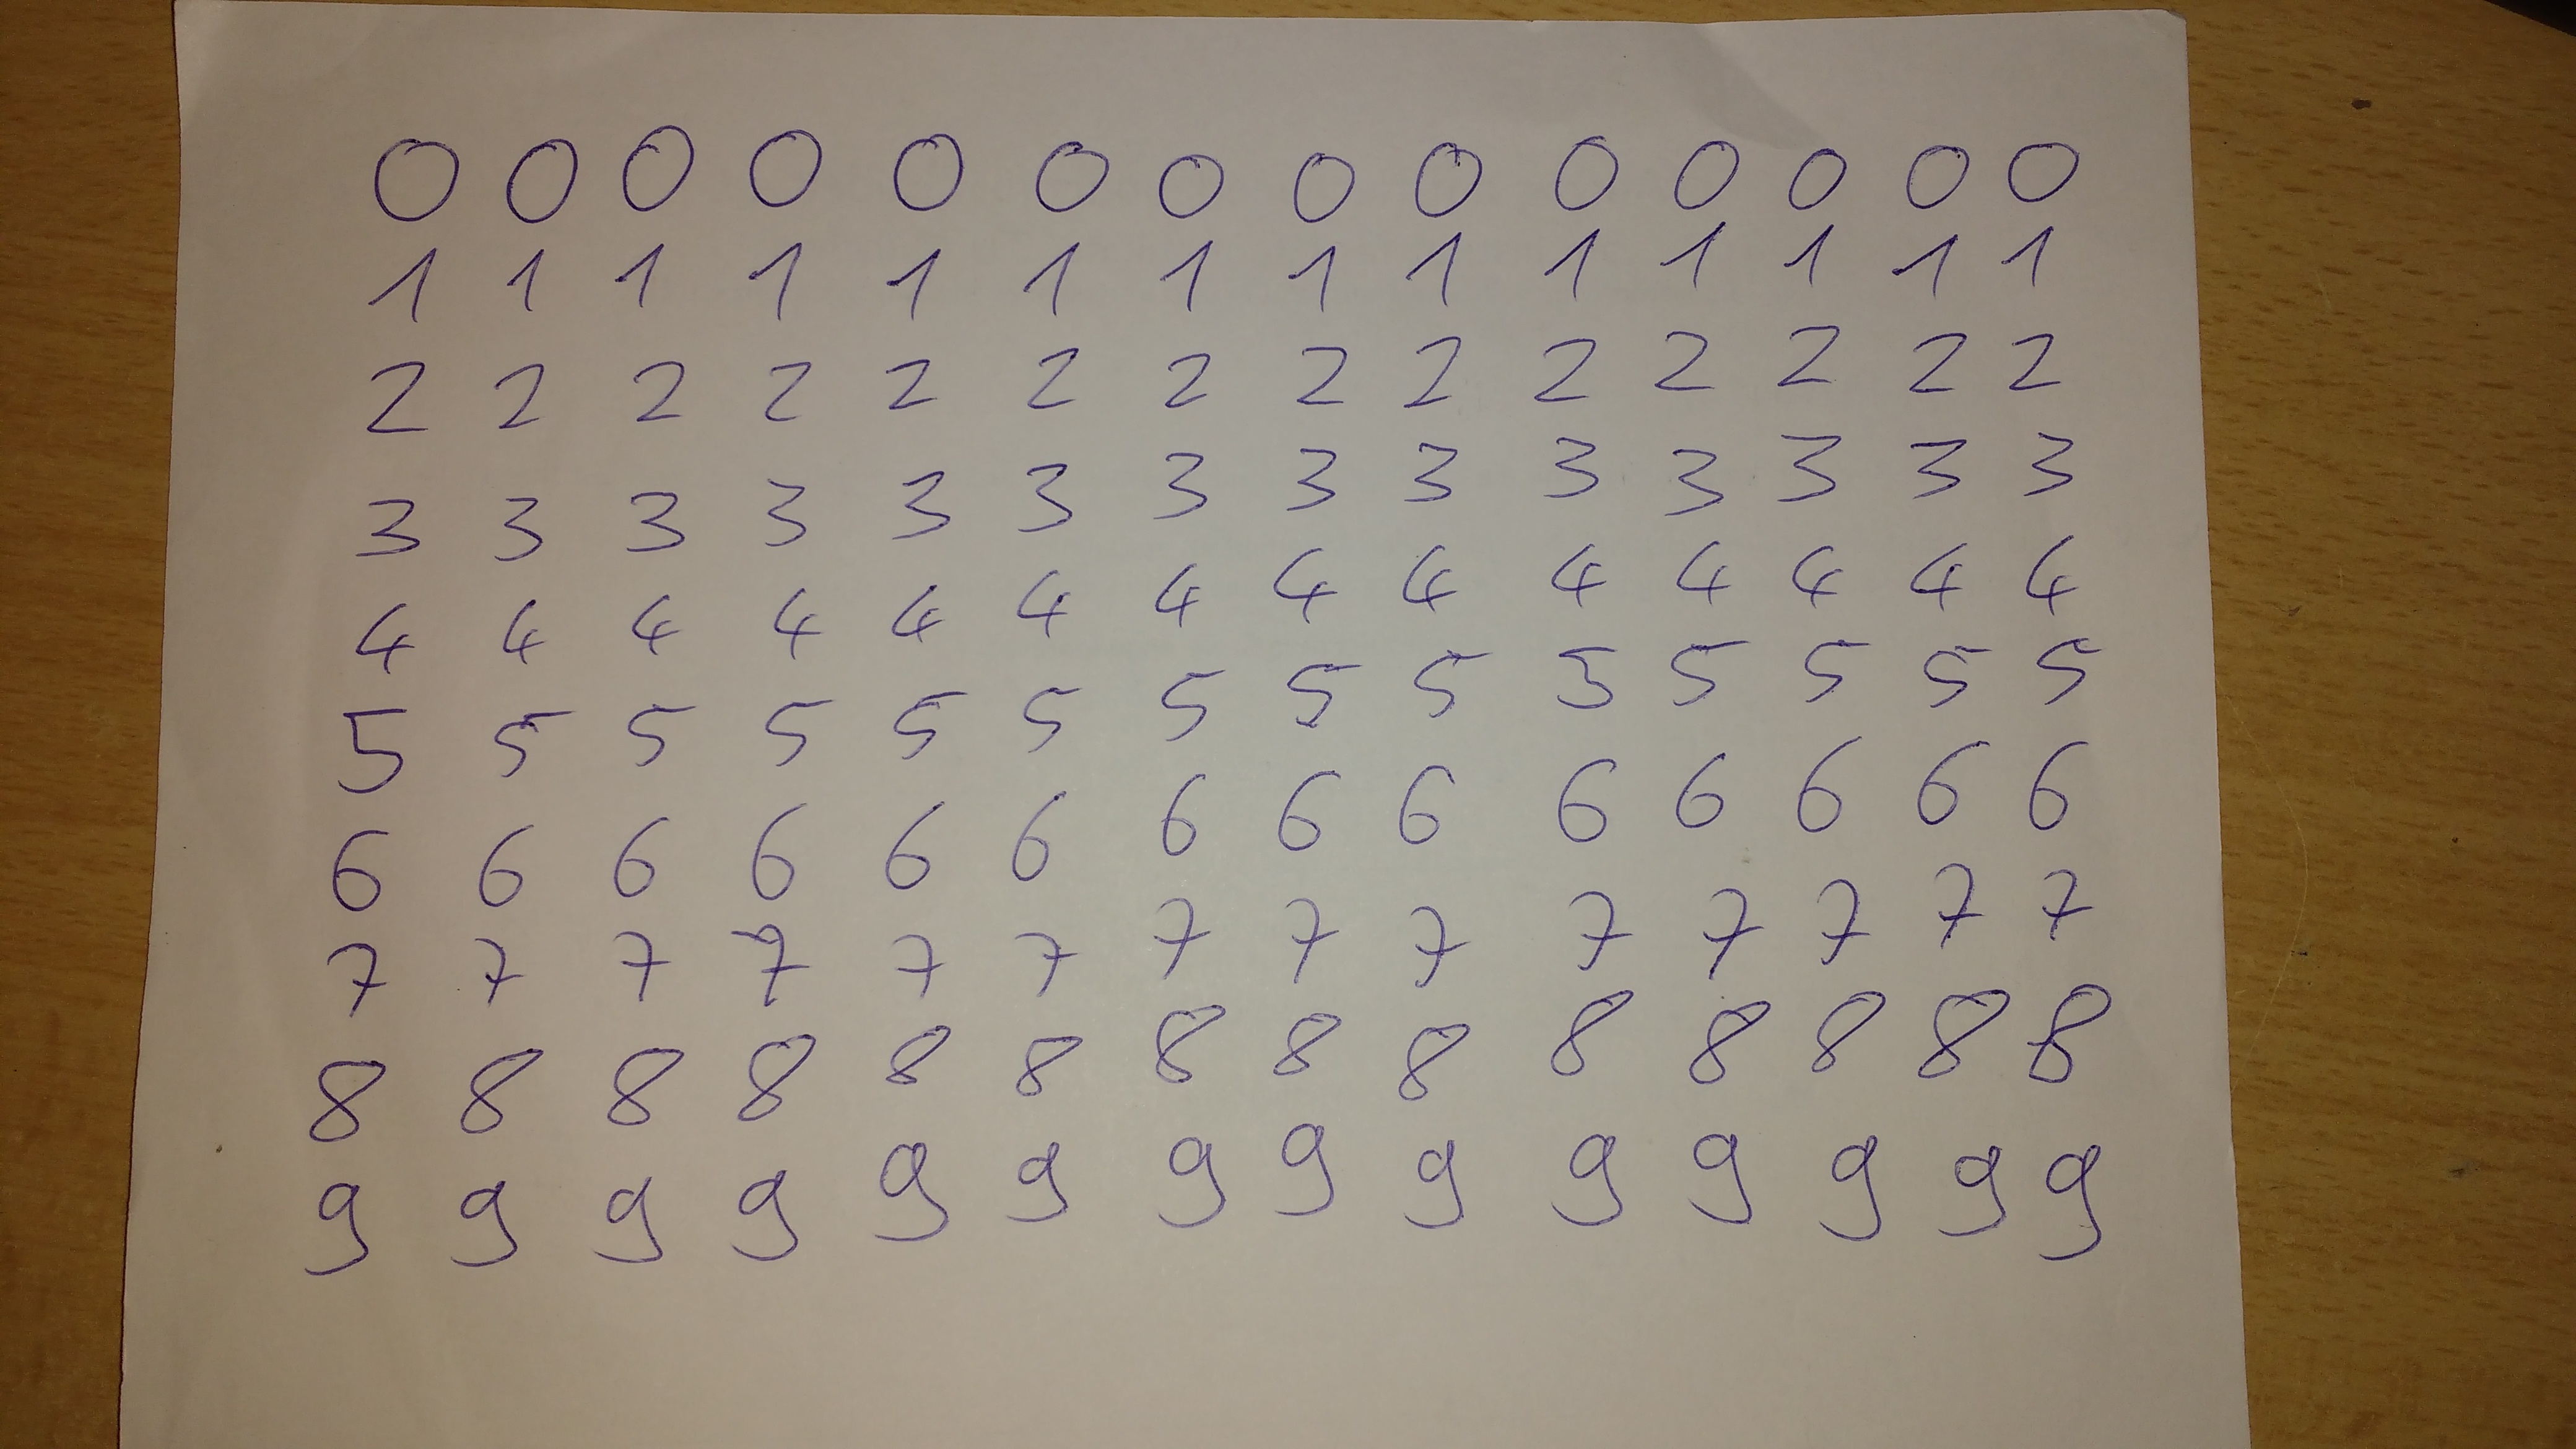 0 0 0 0 0 0 0 0 0 0 0 0 0 0
1 1 1 1 1 1 1 1 1 1 1 1 1 1
2 2 2 2 2 2 2 2 2 2 2 2 2 2
3 3 3 3 3 3 3 3 3 3 3 3 3 3
4 4 4 4 4 4 4 4 4 4 4 4 4 4
5 5 5 5 5 5 5 5 5 5 5 5 5 5
6 6 6 6 6 6 6 6 6 6 6 6 6 6
7 7 7 7 7 7 7 7 7 7 7 7 7 7
8 8 8 8 8 8 8 8 8 8 8 8 8 8
9 9 9 9 9 9 9 9 9 9 9 9 9 9